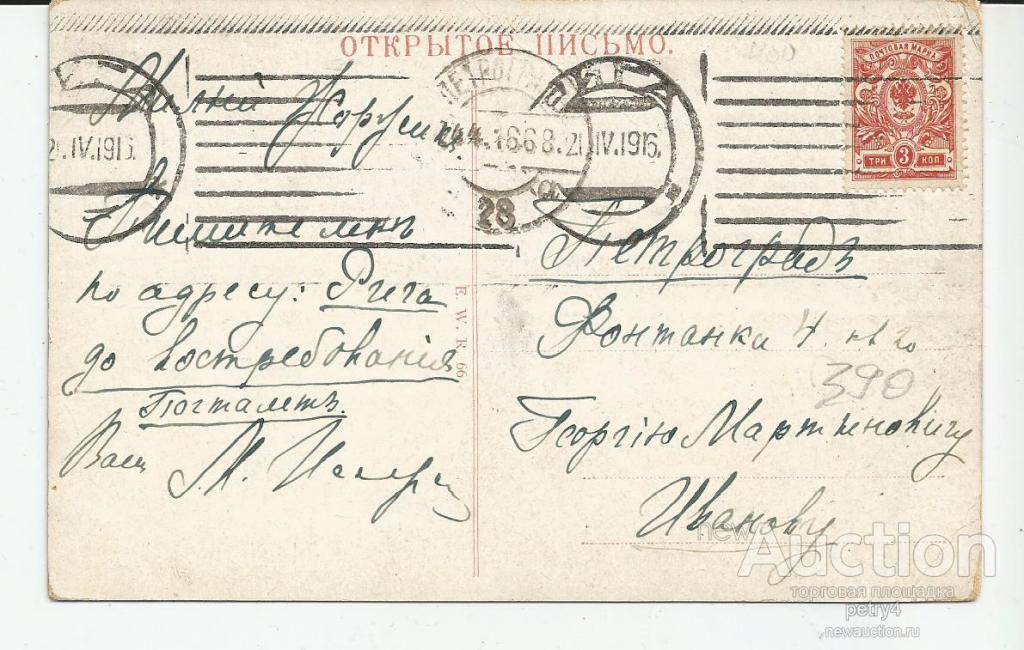 ОТКРЫТОЕ ПИСЬМО.
ПОЧТОВАЯ МАРКА
ТРИ 3 КОП
ПЕТРОГРАД
21.IV.1916.
21.IV.1916.
28
Милый Жоружик
Пишите мнѣ
по адресу: Рига
до востребованія
Почтамтъ.
Ваш М.
E. W. R. 66
Петроградъ
Фонтанка 4. кв 20
390
Георгію Мартыновичу
Иванову
newAuction
торговая площадка
petry4
newauction.ru